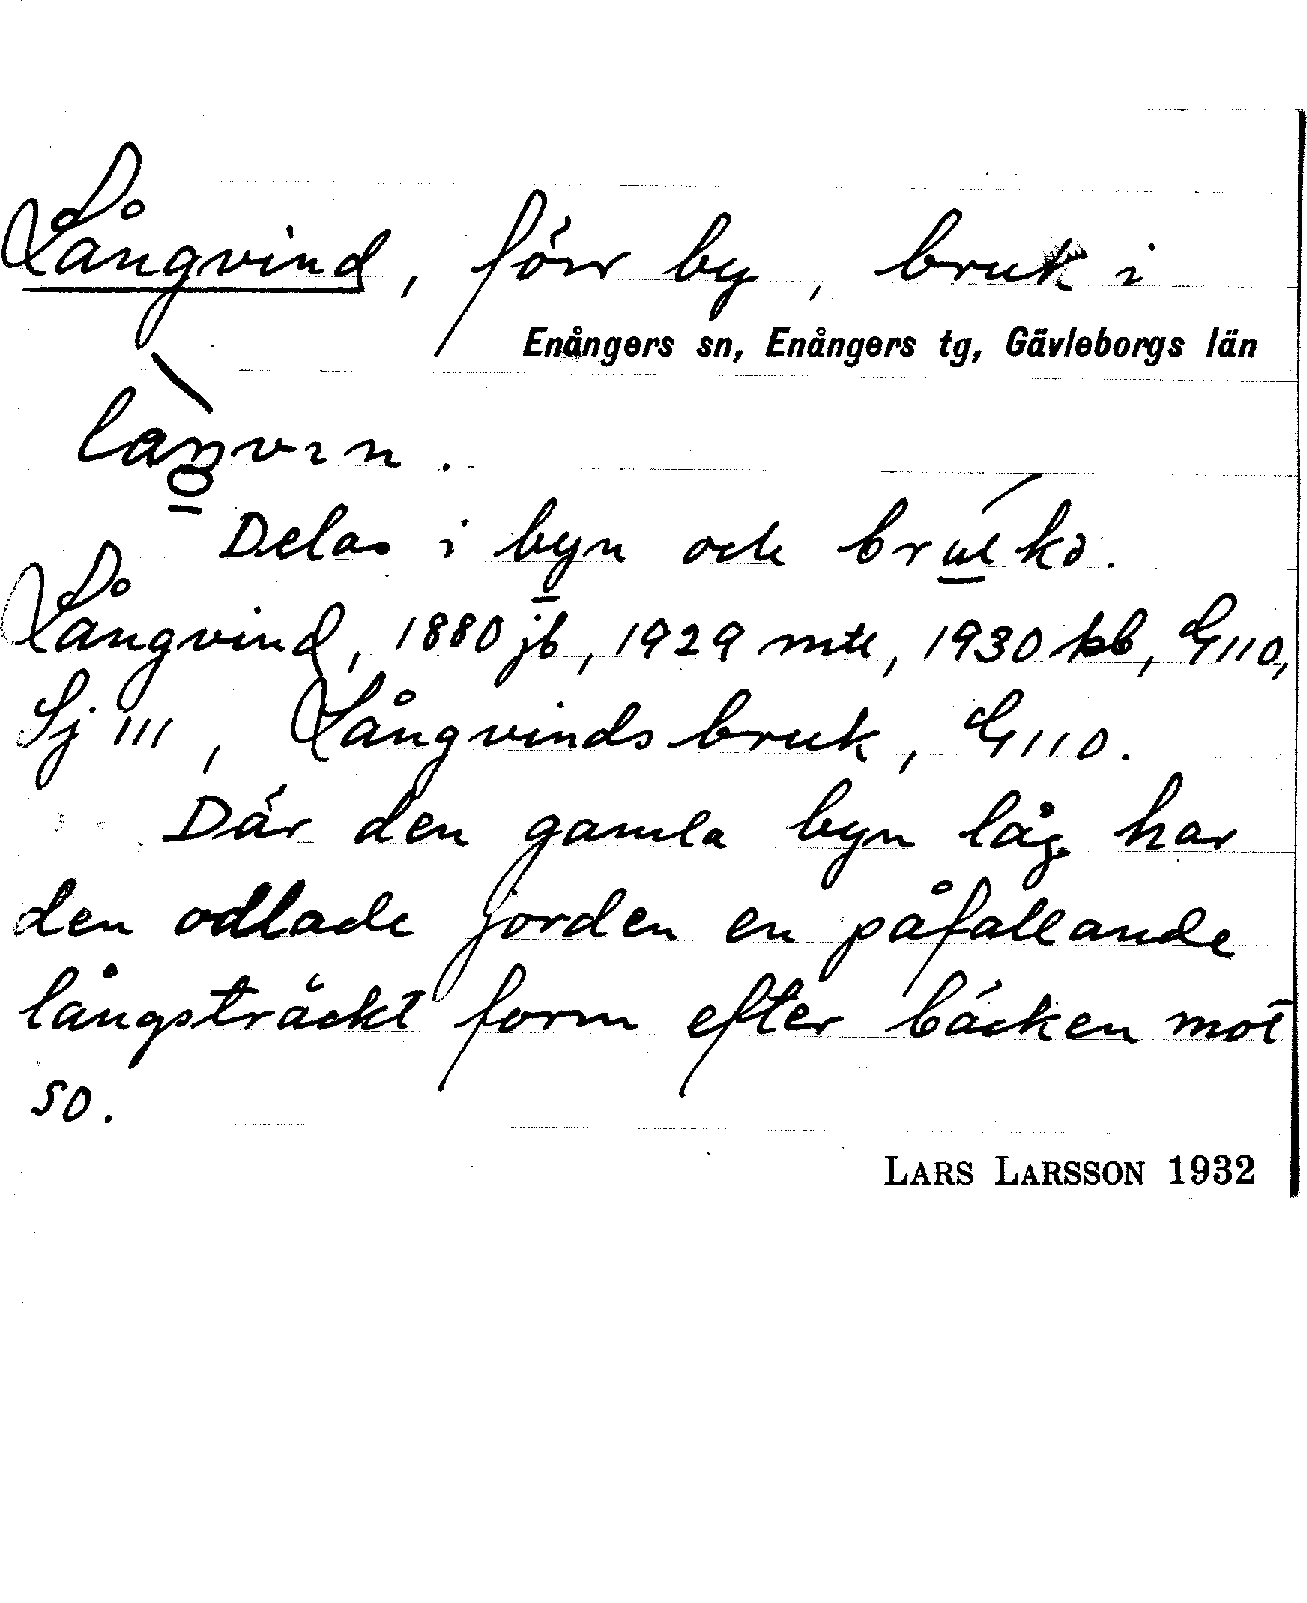 Långvind, förr by, bruk i
Enångers sn, Enångers tg, Gävleborgs län
Delas i byn och
Långvind, 1880 jb, 1929 mtl, 1930 kb, G110,
Sj 111, Långvinds bruk, G110.
Där den gamla byn låg har
den odlade jorden en påfallande
långsträckt form efter bäcken mot
so.
LARS LARSSON 1932